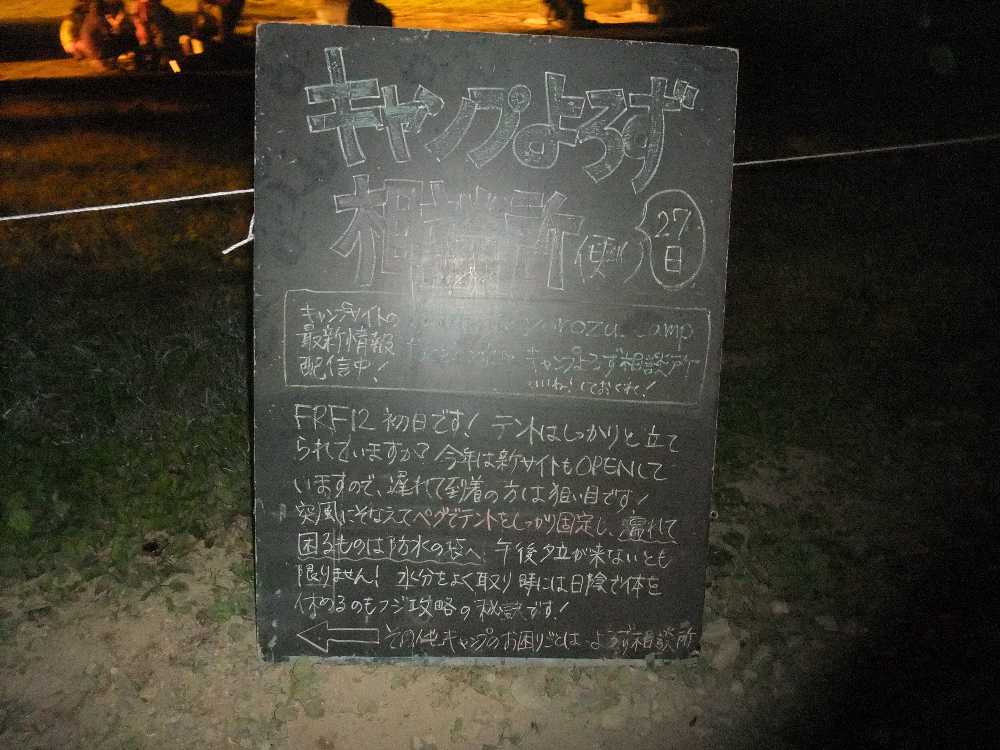 キャンプよろず
相談所便り
27日
キャンプサイトの
最新情報
配信中!
yorozu camp
キャンプよろず相談所
いいね!しておくれ!
FRF12 初日です! テントはしっかりと立て
られていますか? 今年は新サイトもOPENして
いますので、遅れて到着の方は狙い目です!
突風にそなえてペグでテントをしっかり固定し、濡れて
困るものは防水の袋へ 午後夕立が来ないとも
限りません! 水分をよく取り 時には日陰で体を
休めるのもフジ攻略の秘訣です!
その他、キャンプのお困りごとは よろず相談所